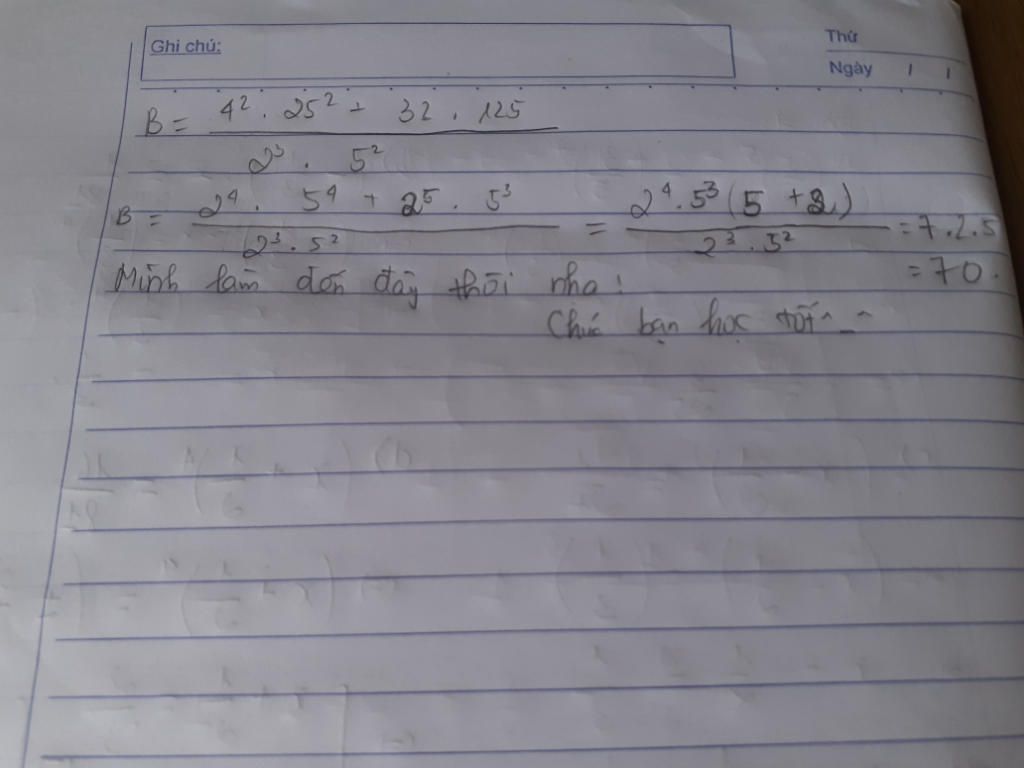 Ghi chú:
Thứ
Ngày / /
B = \frac{4² . 25² + 32 . 125}{2³ . 5²}
B = \frac{2⁴ . 5⁴ + 2⁵ . 5³}{2³ . 5²} = \frac{2⁴ . 5³ (5 + 2)}{2³ . 5²} = 7.2.5
= 70.
Mình làm đến đây thôi nha!
Chúc bạn học tốt ^_^